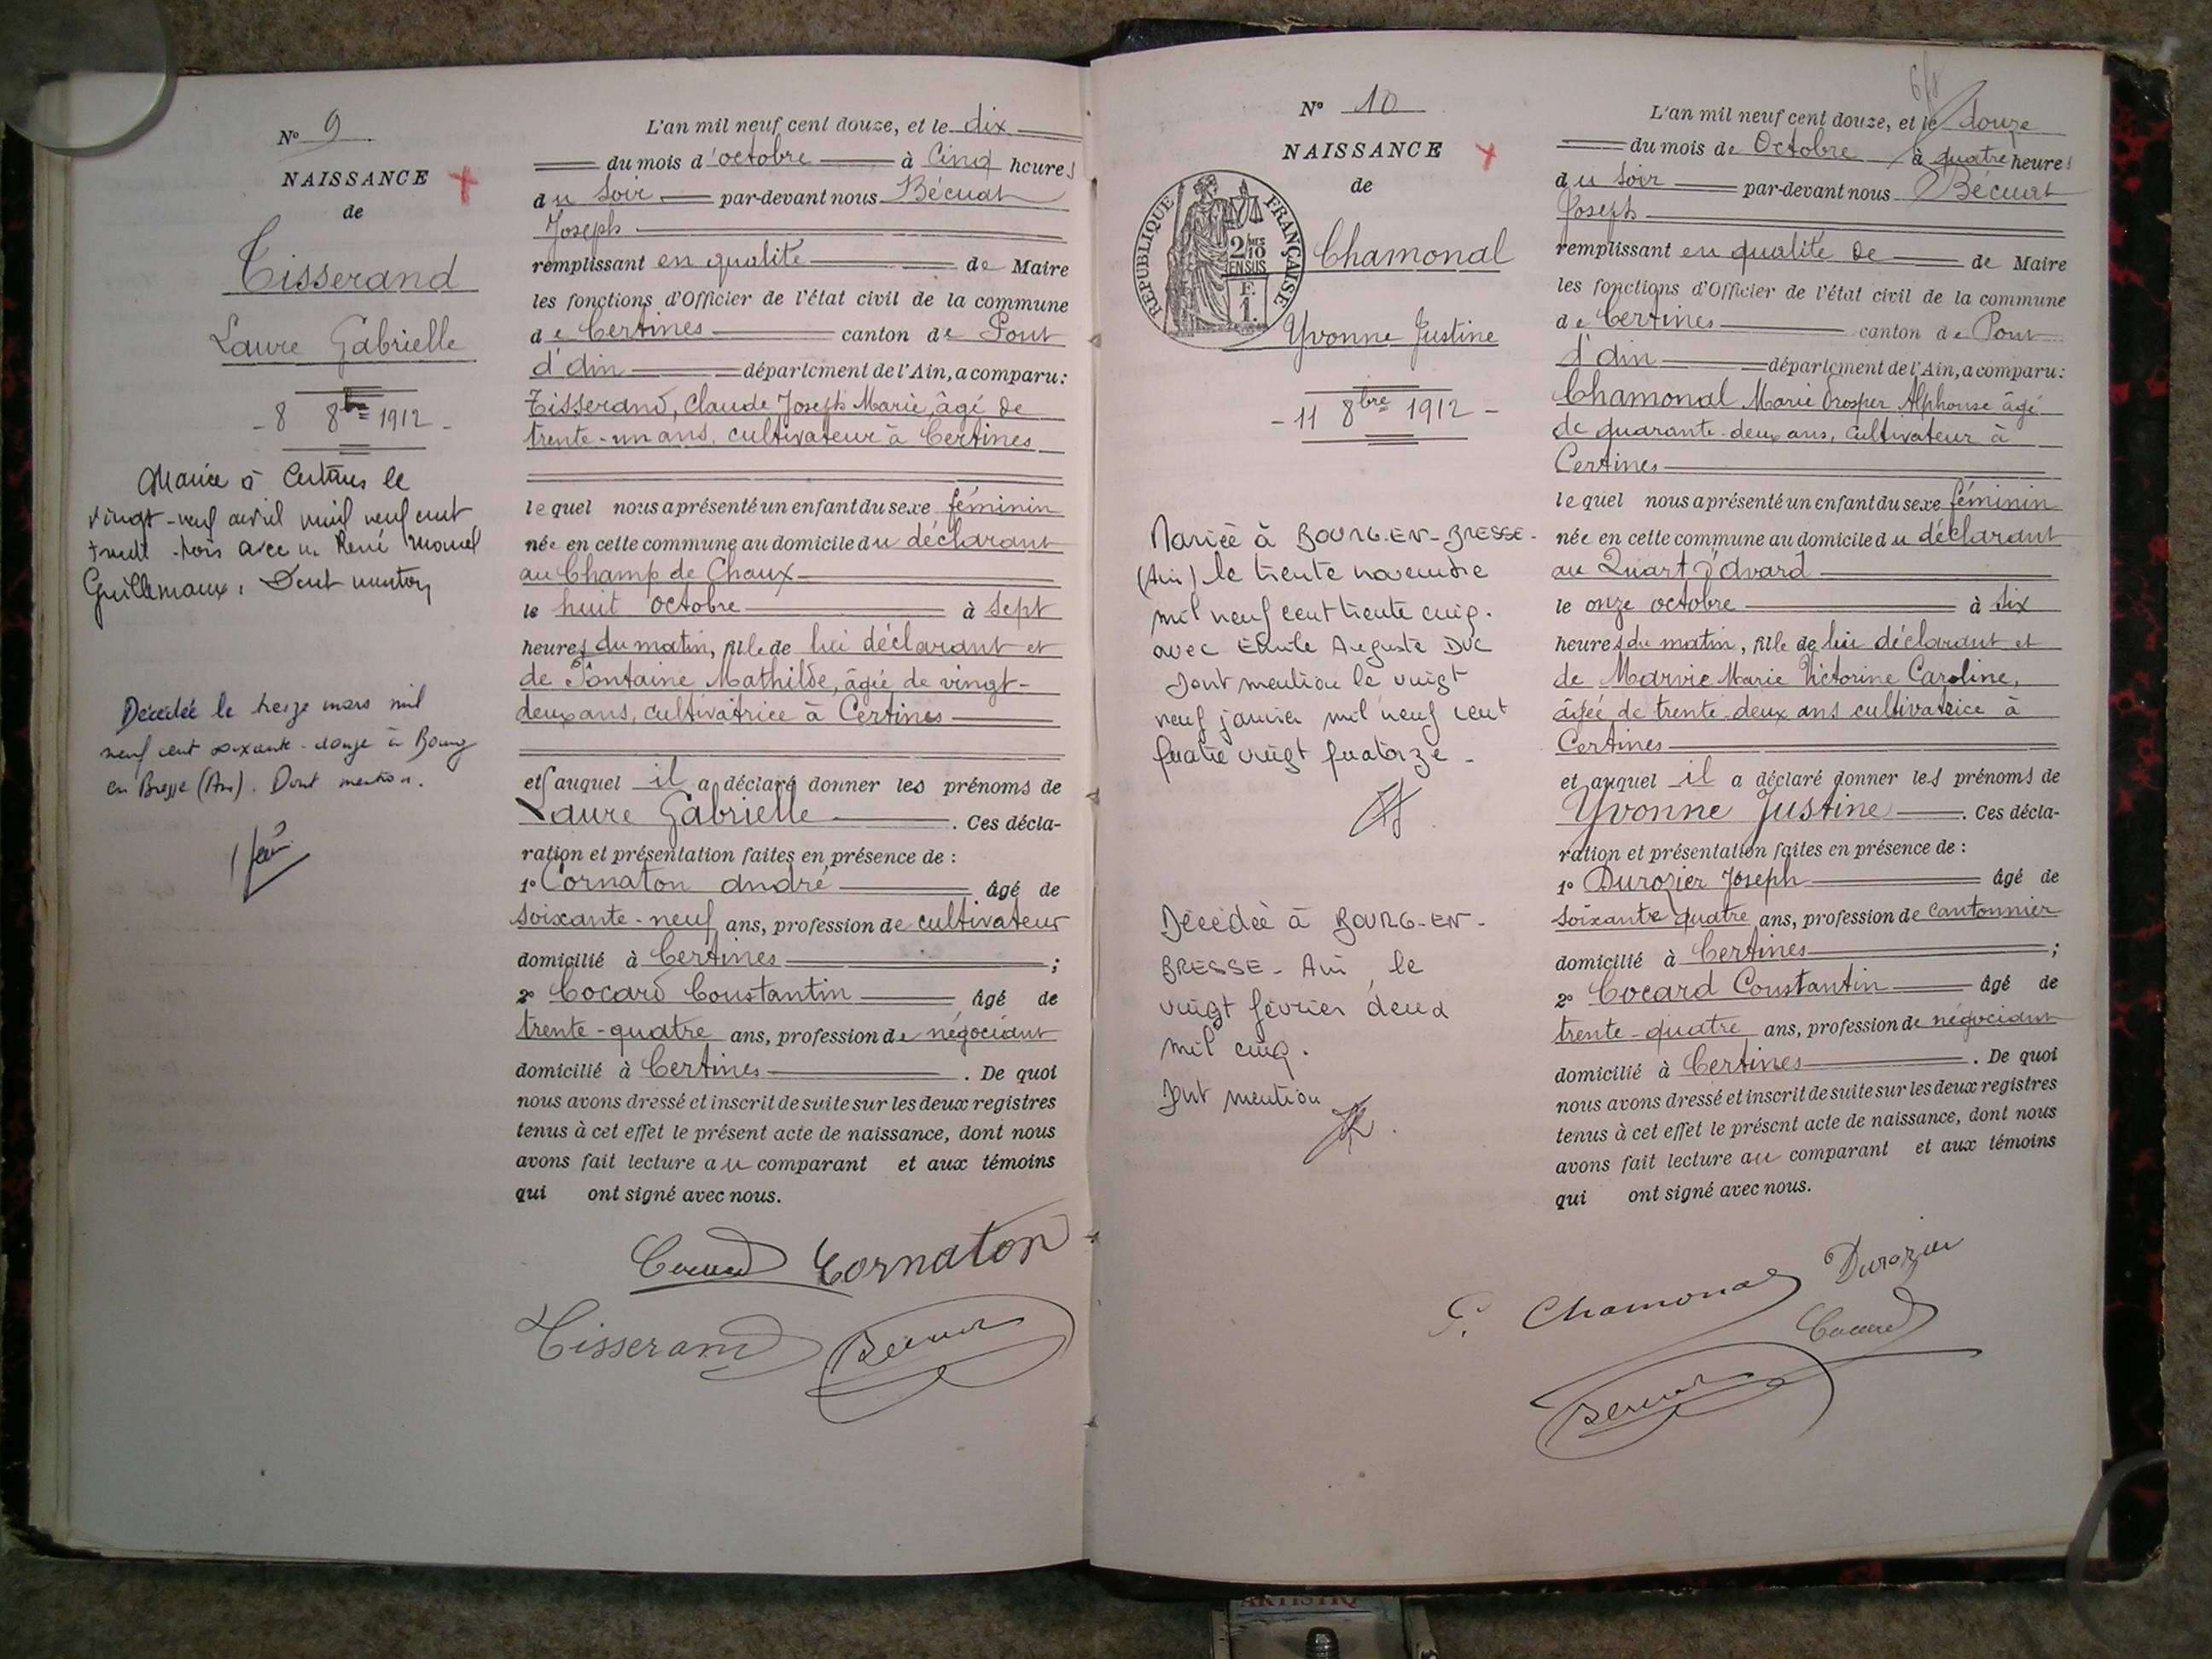 N° 9
NAISSANCE
de
Tisserand
Laure Gabrielle
- 8 8bre 1912 -
Mariée à Certines le
vingt-neuf avril mil neuf cent
trente trois avec René Marcel
Guillemaux. Dont mention
Décédée le treize mars mil
neuf cent soixante-douze à Bourg
en Bresse (Ain). Dont mention.
L'an mil neuf cent douze, et le dix
du mois d'octobre à Cinq heures
du soir par-devant nous Bécuat
Joseph
remplissant en qualité de Maire
les fonctions d'Officier de l'état civil de la commune
de Certines canton de Pont
d'ain département de l'Ain, a comparu:
Tisserand, Claude Joseph Marie, âgé de
trente-un ans, cultivateur à Certines
lequel nous a présenté un enfant du sexe féminin
née en cette commune au domicile du déclarant
au Champ de Chaux
le huit octobre à sept
heures du matin, fille de lui déclarant et
de Fontaine Mathilde, âgée de vingt-
deux ans, cultivatrice à Certines
et auquel il a déclaré donner les prénoms de
Laure Gabrielle. Ces décla-
ration et présentation faites en présence de :
1° Cornaton andré âgé de
soixante-neuf ans, profession de cultivateur
domicilié à Certines ;
2° Cocard Constantin âgé de
trente-quatre ans, profession de négociant
domicilié à Certines. De quoi
nous avons dressé et inscrit de suite sur les deux registres
tenus à cet effet le présent acte de naissance, dont nous
avons fait lecture au comparant et aux témoins
qui ont signé avec nous.
Cocard Cornaton
Tisserand Bécuat
N° 10
NAISSANCE
de
REPUBLIQUE FRANÇAISE
2/10 MES
EN SUS
F.
1.
Chamonal
Yvonne Justine
- 11 8bre 1912 -
Mariée à BOURG-EN-BRESSE-
(Ain) le trente novembre
mil neuf cent trente cinq.
avec Emile Auguste DUC
Dont mention le vingt
neuf janvier mil neuf cent
quatre vingt quatorze -
Décédée à BOURG-EN-
BRESSE - Ain, le
vingt février deux
mil cinq.
Dont mention
L'an mil neuf cent douze, et le douze
du mois de Octobre à quatre heures
du soir par-devant nous Bécuat
Joseph
remplissant en qualité de de Maire
les fonctions d'Officier de l'état civil de la commune
de Certines canton de Pont
d'ain département de l'Ain, a comparu:
Chamonal Marie Prosper Alphonse âgé
de quarante-deux ans, cultivateur à
Certines
lequel nous a présenté un enfant du sexe féminin
née en cette commune au domicile du déclarant
au Quart d'avard
le onze octobre à six
heures du matin, fille de lui déclarant et
de Marvie Marie Victorine Caroline,
âgée de trente-deux ans cultivatrice à
Certines
et auquel il a déclaré donner les prénoms de
Yvonne Justine. Ces décla-
ration et présentation faites en présence de :
1° Durozier Joseph âgé de
soixante quatre ans, profession de cantonnier
domicilié à Certines ;
2° Cocard Constantin âgé de
trente-quatre ans, profession de négociant
domicilié à Certines. De quoi
nous avons dressé et inscrit de suite sur les deux registres
tenus à cet effet le présent acte de naissance, dont nous
avons fait lecture au comparant et aux témoins
qui ont signé avec nous.
Chamonal Durozier
Cocard
Bécuat
ARTISTIQ